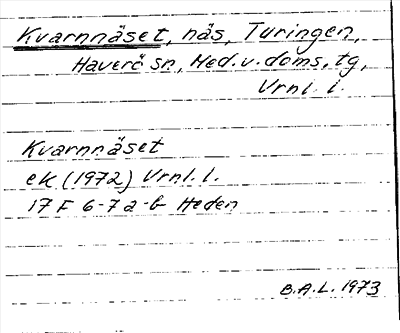 Kvarnnäset, näs, Turingen,
Haverö sn, Med. v. doms. tg,
Vrnl. l.
Kvarnnäset
ek (1972) Vrnl. l.
17 F 6-7 a-b Heden
B.A.L. 1973